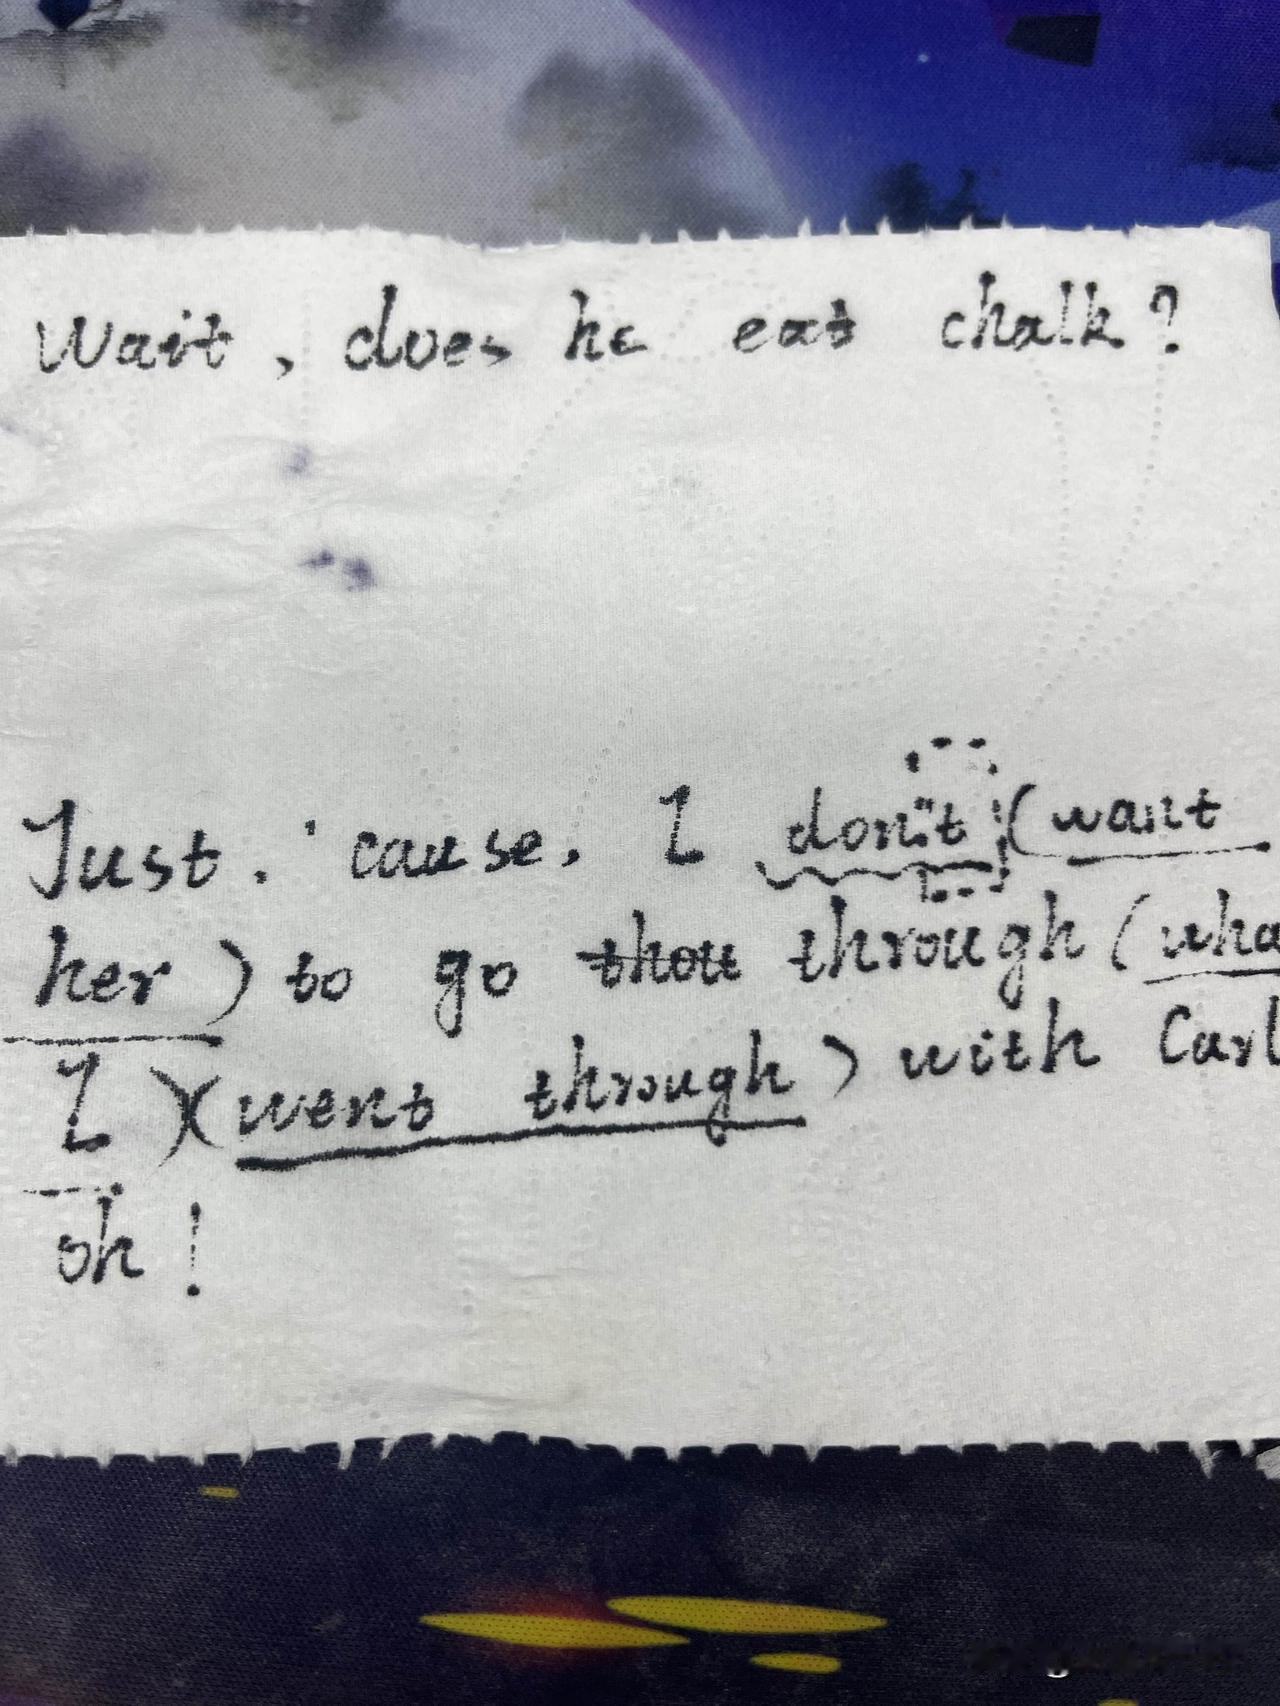 Wait, does he eat chalk?
Just. 'cause, I don't (want
her) to go thou through (wha
I)(went through) with Carl
oh!